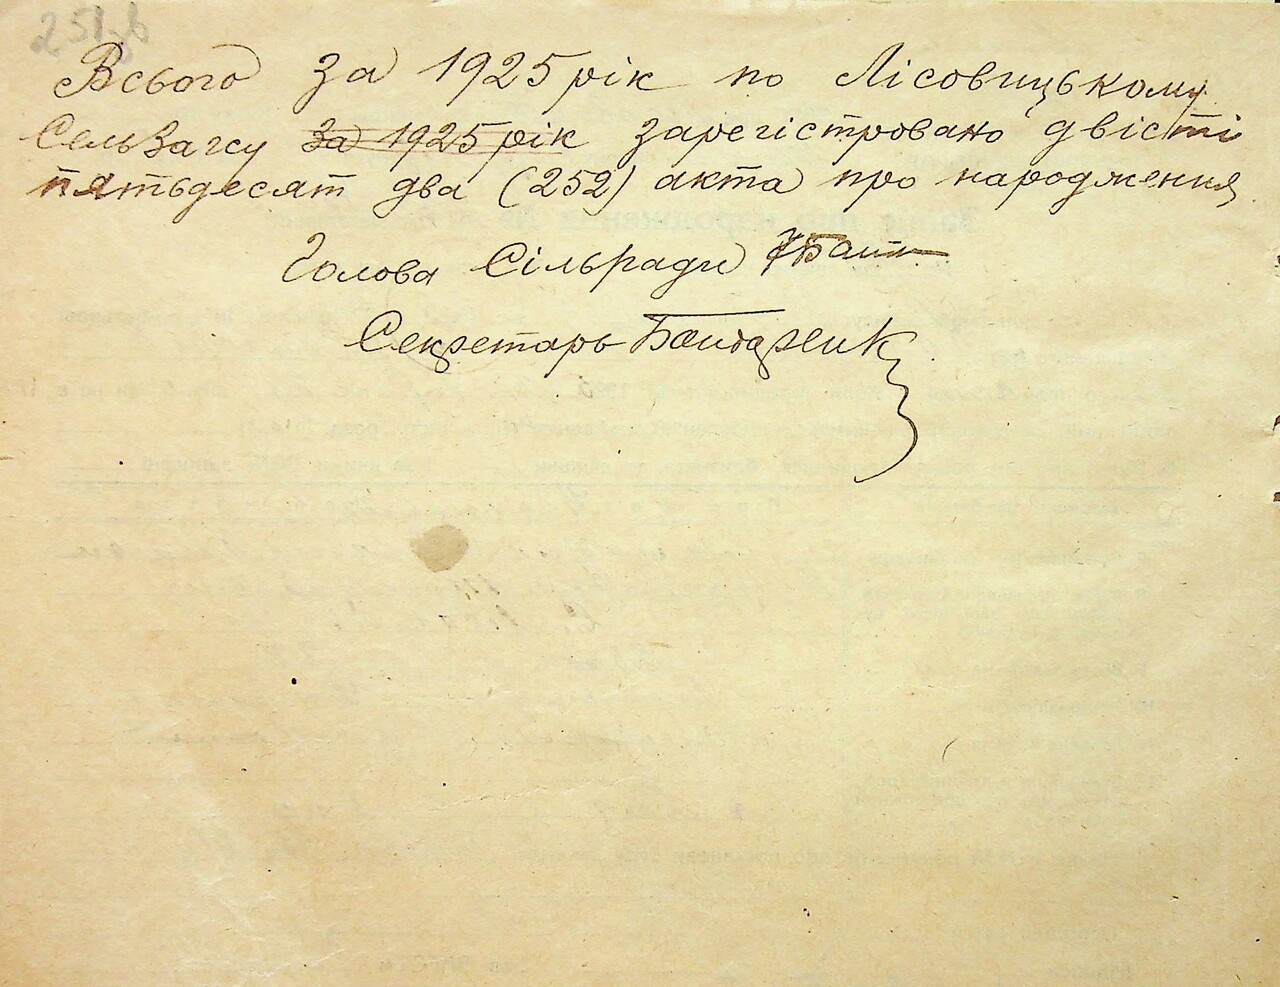 251зв
Всього за 1925 рік по Лісовицькому
СельЗагсу за 1925 рік зарегістровано двісті
пятьдесят два (252) акта про народження
Голова Сільради
Секретарь